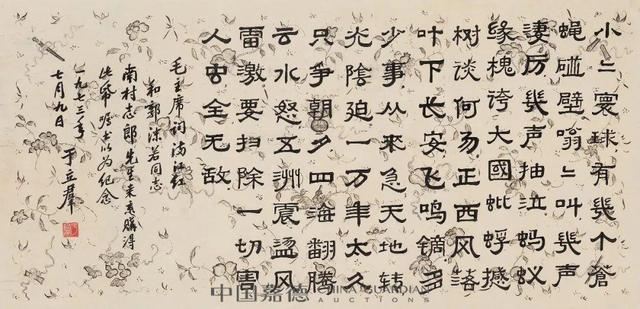 小〻寰球有幾个蒼
蝇碰壁嗡〻叫幾声
凄厉幾声抽泣蚂蚁
缘槐誇大國蚍蜉撼
树谈何易正西风落
叶下长安飞鸣镝多
少事从来急天地转
光陰迫一万年太久
只争朝夕四海翻腾
云水怒五洲震盪风
雷激要扫除一切害
人虫全无敌
毛主席词满江红
和郭沫若同志
南村志郎先生来京購得
此帋嘱书以为纪念
一九七三年
七月九日
于立群
中国嘉德 CHINA GUARDIAN
AUCTIONS